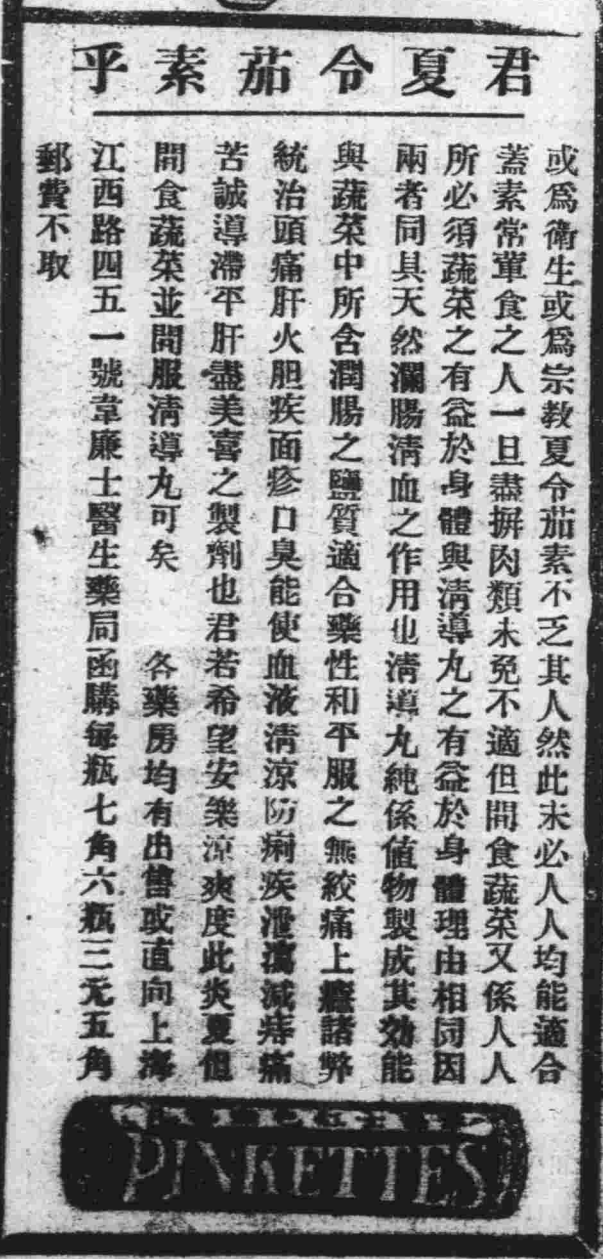 君夏令茹素乎
或爲衛生或爲宗教夏令茹素不乏其人然此未必人人均能適合
蓋素常葷食之人一旦盡摒肉類未免不適但間食蔬菜又係人人
所必須蔬菜之有益於身體與清導丸之有益於身體理由相同因
兩者同具天然瀾腸清血之作用也清導丸純係値物製成其効能
與蔬菜中所含潤腸之鹽質適合藥性和平服之無絞痛上癮諸弊
統治頭痛肝火胆疾面疹口臭能使血液清涼防痢疾泄瀉減痔痛
苦誠導滯平肝盡美喜之製劑也君若希望安樂涼爽度此炎夏但
間食蔬菜並間服清導丸可矣　各藥房均有出售或直向上海
江西路四五一號韋廉士醫生藥局函購每瓶七角六瓶三元五角
郵費不取
PINKETTES